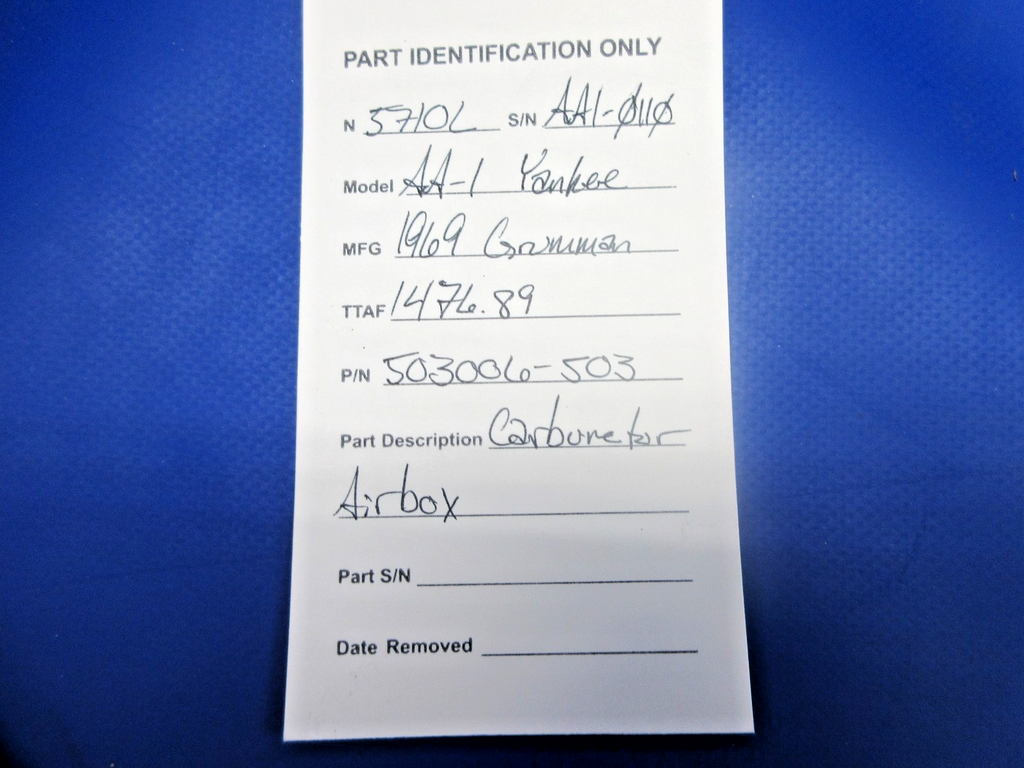 PART IDENTIFICATION ONLY
N 5710L S/N AA1-0110
Model AA-1 Yankee
MFG 1969 Grumman
TTAF 1476.89
P/N 503006-503
Part Description Carburetor
Airbox
Part S/N
Date Removed